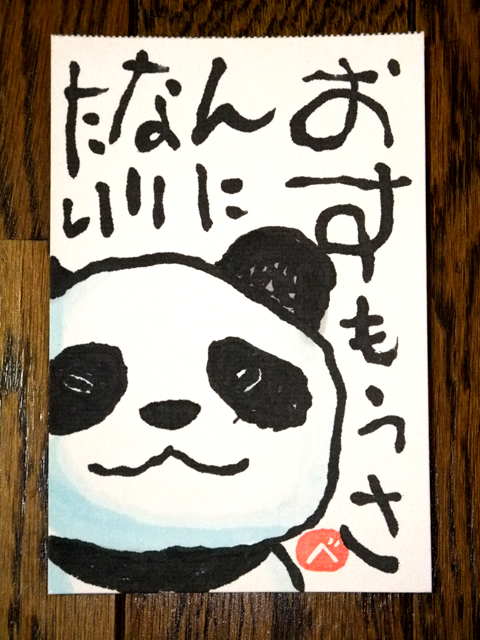 おすもうさ
んに
なり
たい
べ